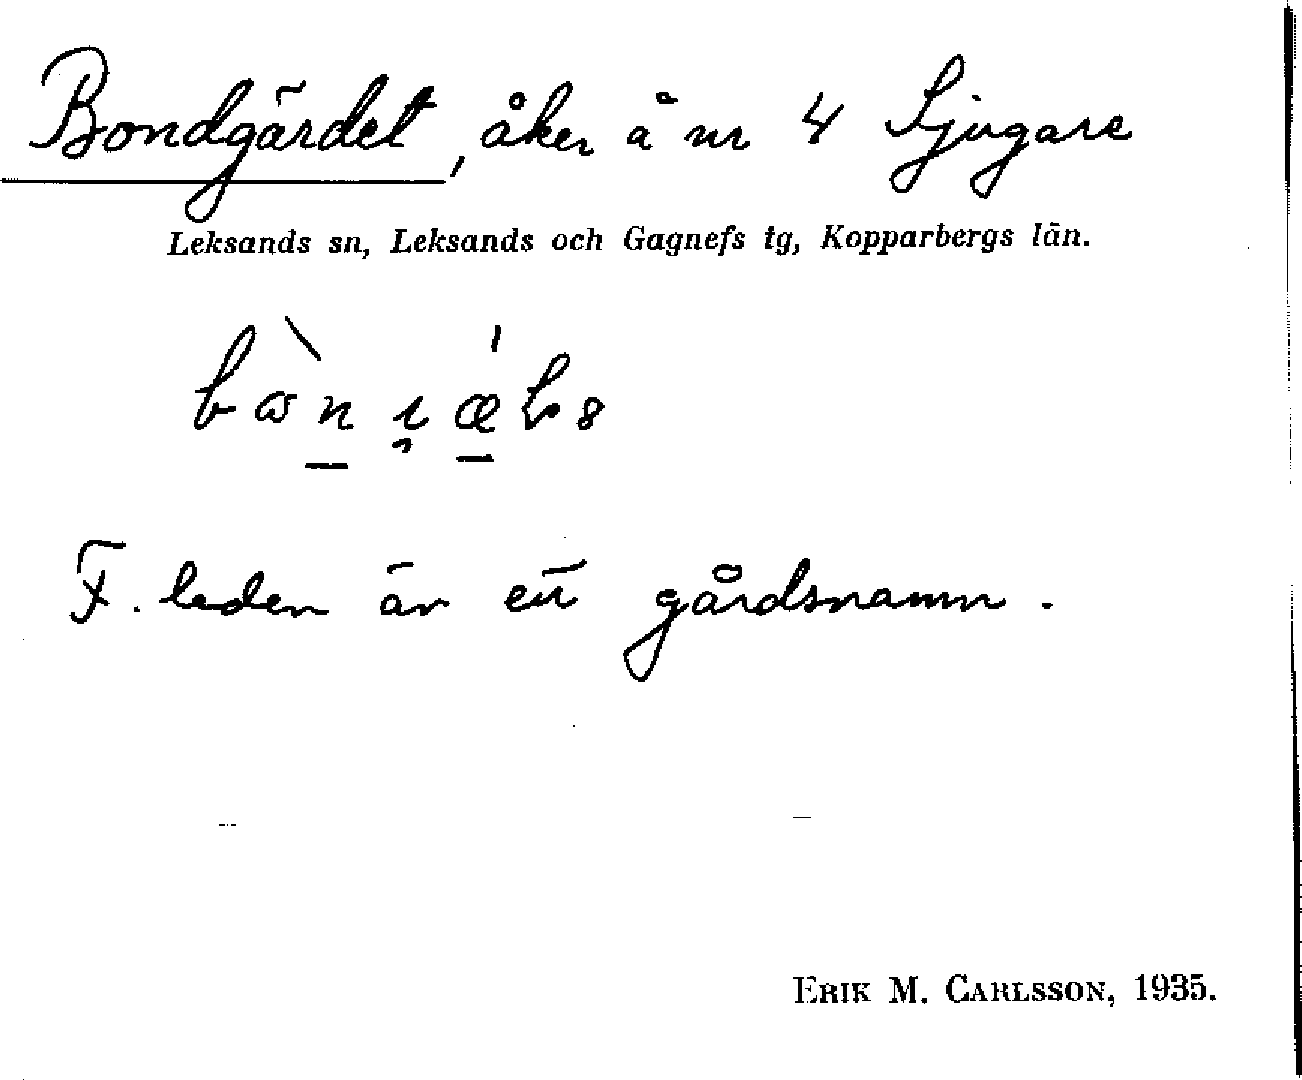 Bondgärdet, åker å nr 4 Sjugare
Leksands sn, Leksands och Gagnefs tg, Kopparbergs län.
F. leden är ett gårdsnamn.
ERIK M. CARLSSON, 1935.